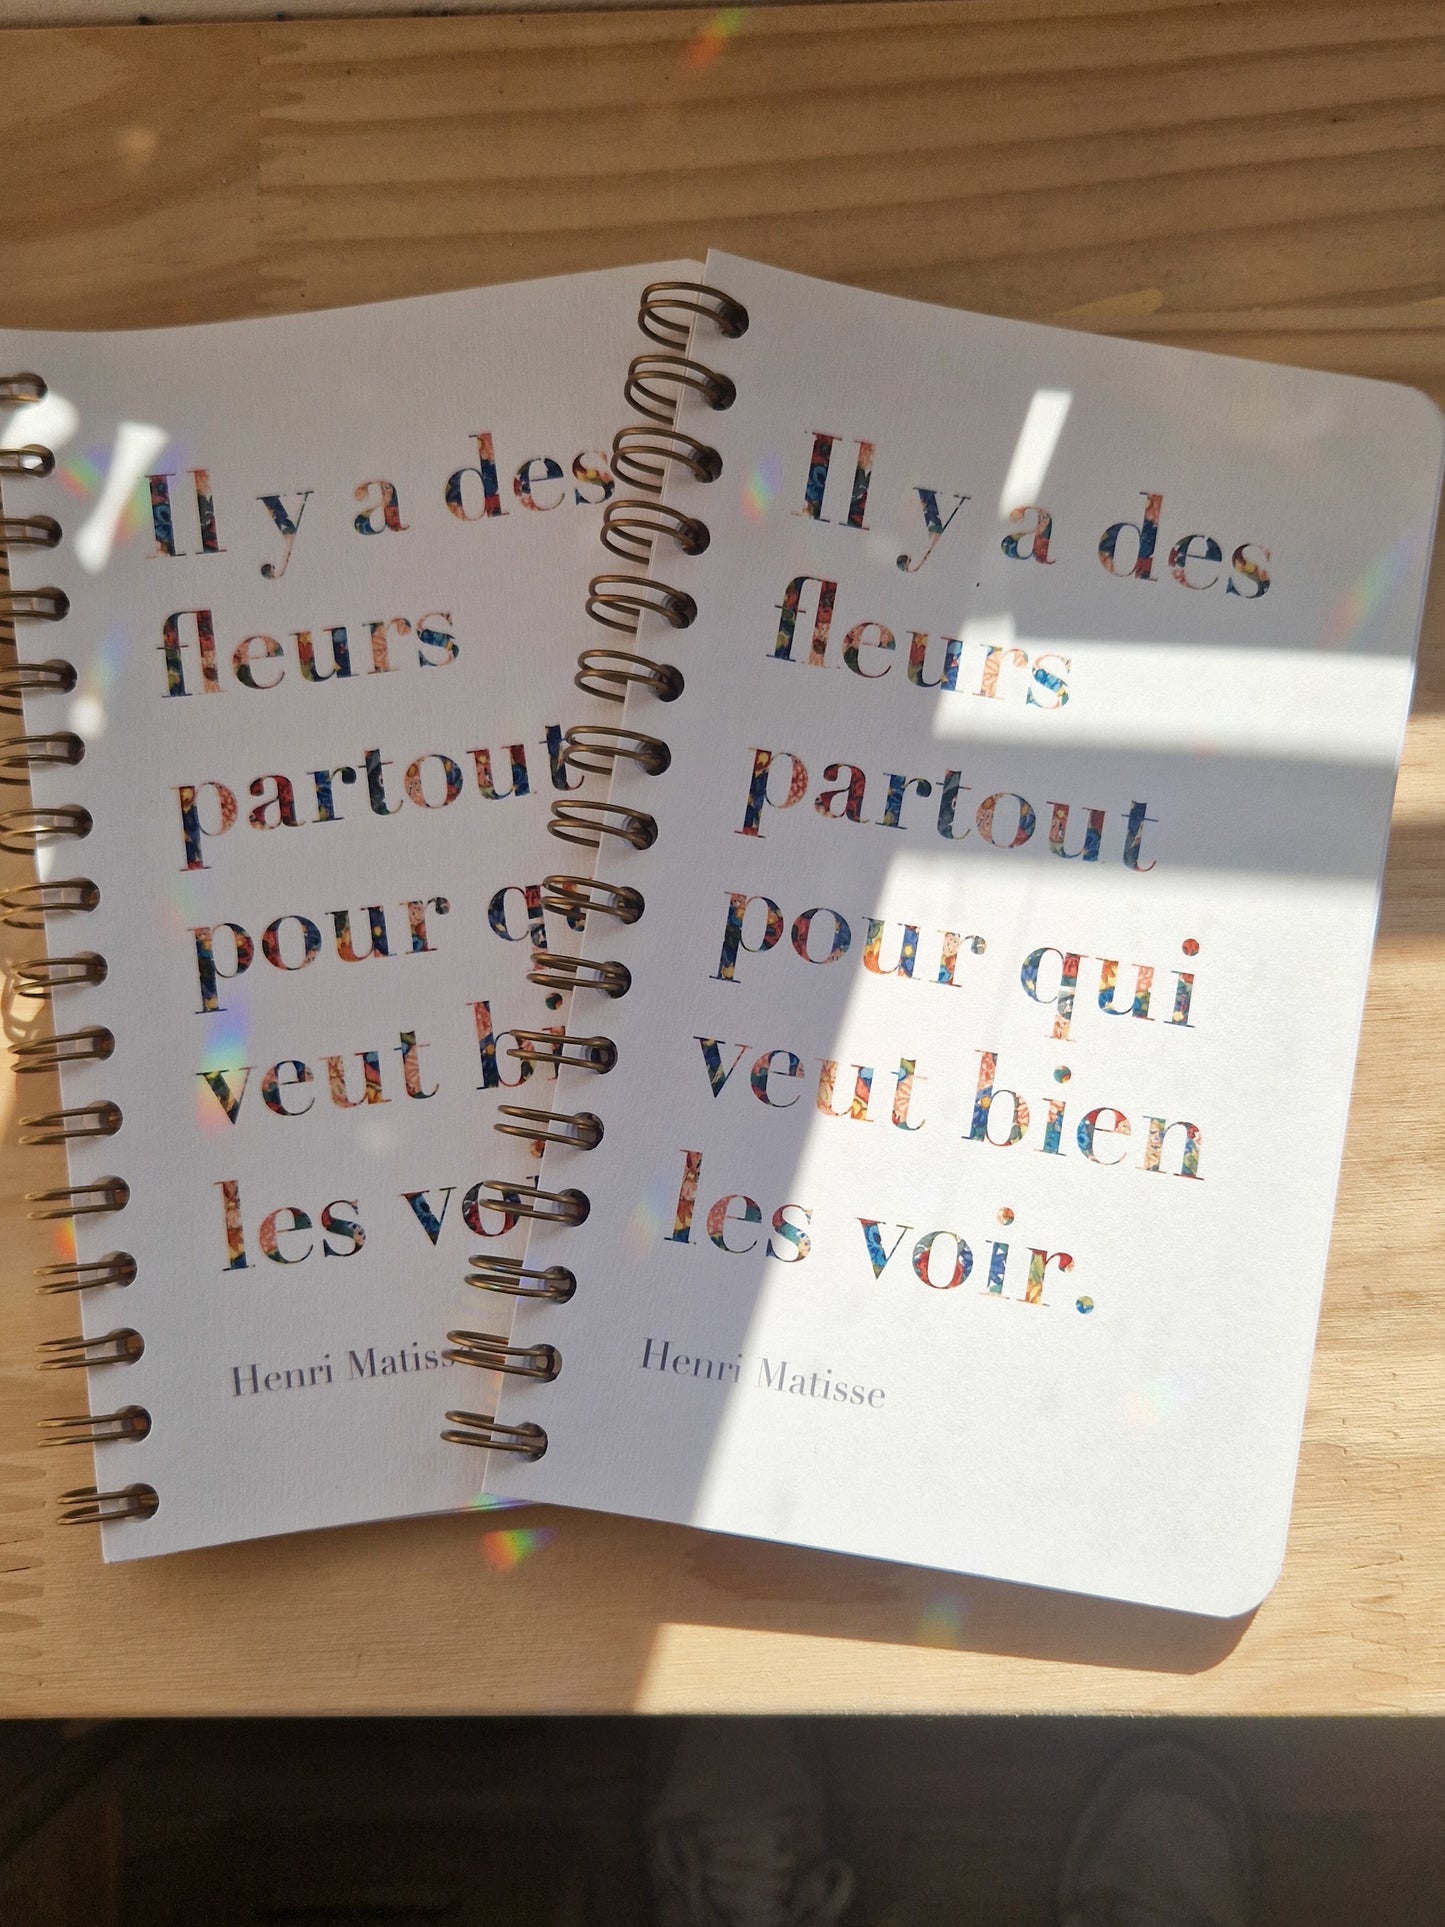 Il y a des
fleurs
partout
pour q
veut bi
les vo
Henri Matiss
Il y a des
fleurs
partout
pour qui
veut bien
les voir.
Henri Matisse